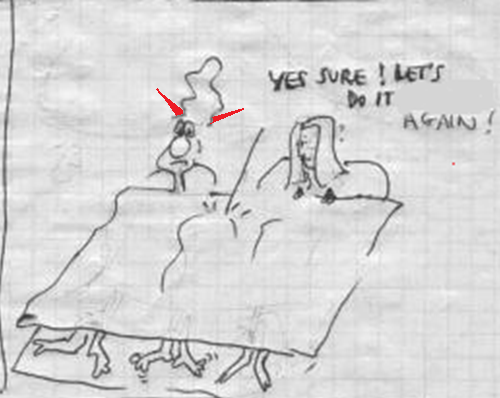 YES SURE! LET'S
DO IT
AGAIN!